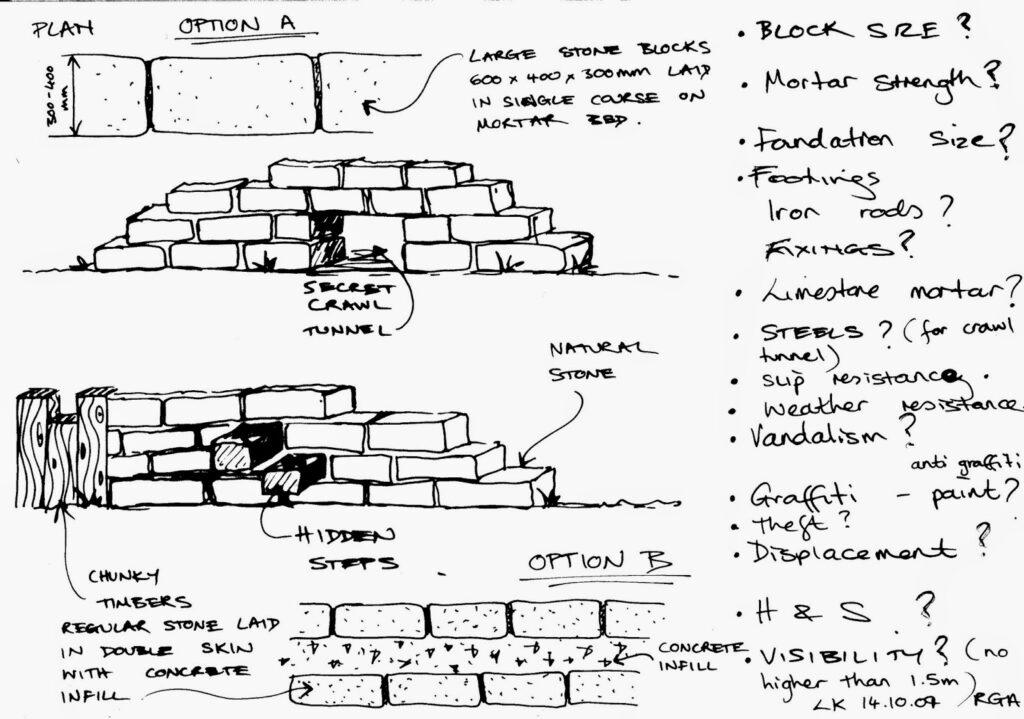 PLAN
OPTION A
300-400
mm
LARGE STONE BLOCKS
600 x 400 x 300mm LAID
IN SINGLE COURSE ON
MORTAR BED.
SECRET
CRAWL
TUNNEL
NATURAL
STONE
HIDDEN
STEPS
CHUNKY
TIMBERS
OPTION B
REGULAR STONE LAID
IN DOUBLE SKIN
WITH CONCRETE
INFILL
CONCRETE
INFILL
• BLOCK SIZE ?
• Mortar Strength?
• Foundation Size?
• Footings
Iron rods?
FIXINGS?
• Limestone mortar?
• STEELS ? (for crawl
tunnel)
• Slip resistance.
• Weather resistance.
• Vandalism ?
anti graffiti
• Graffiti - paint?
• Theft ?
• Displacement ?
• H & S ?
• VISIBILITY? (no
higher than 1.5m)
LK 14.10.09 /RGA